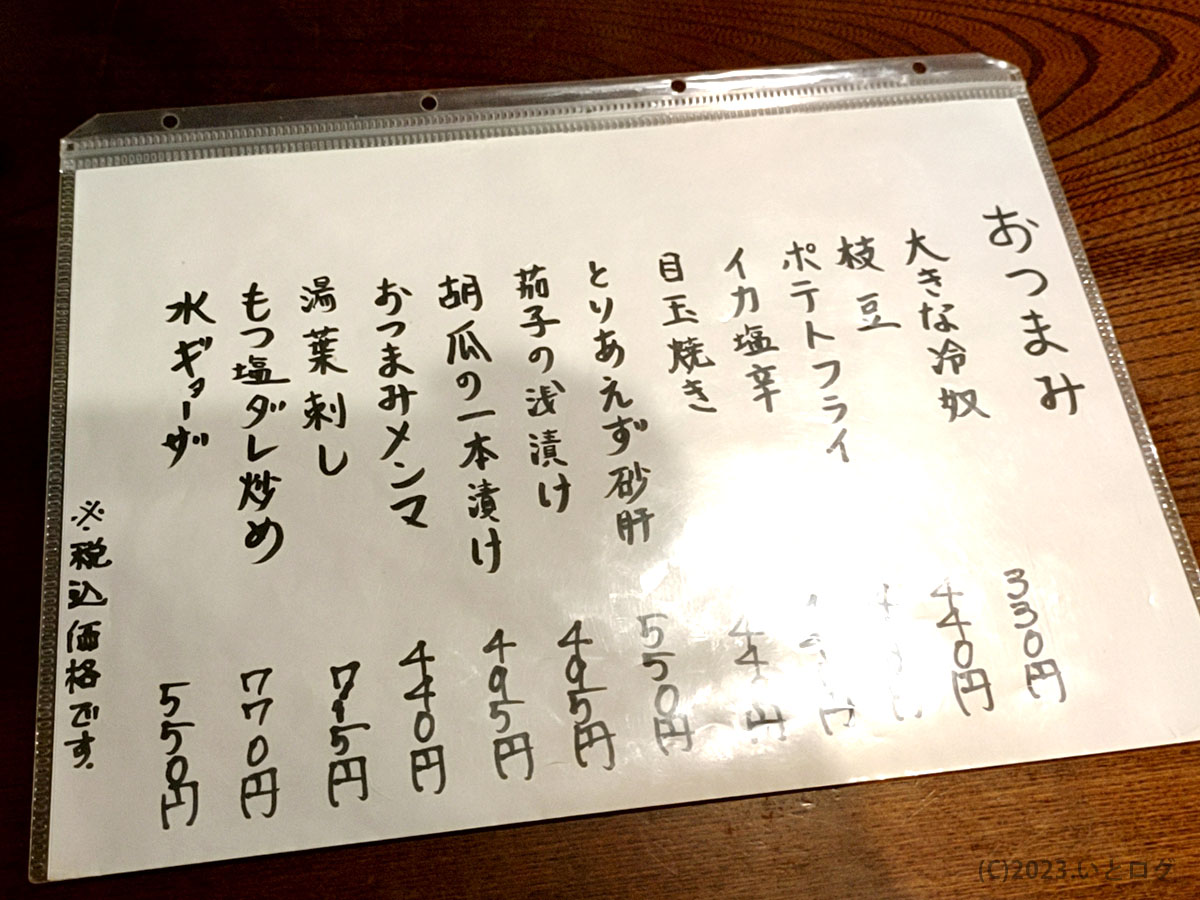 おつまみ
大きな冷奴 330円
枝豆 440円
ポテトフライ
イカ塩辛
目玉焼き
とりあえず砂肝 550円
茄子の浅漬け 495円
胡瓜の一本漬け 495円
おつまみメンマ 440円
湯葉刺し
もつ塩ダレ炒め 770円
水ギョーザ 550円
※税込価格です.
(C)2023.いとログ